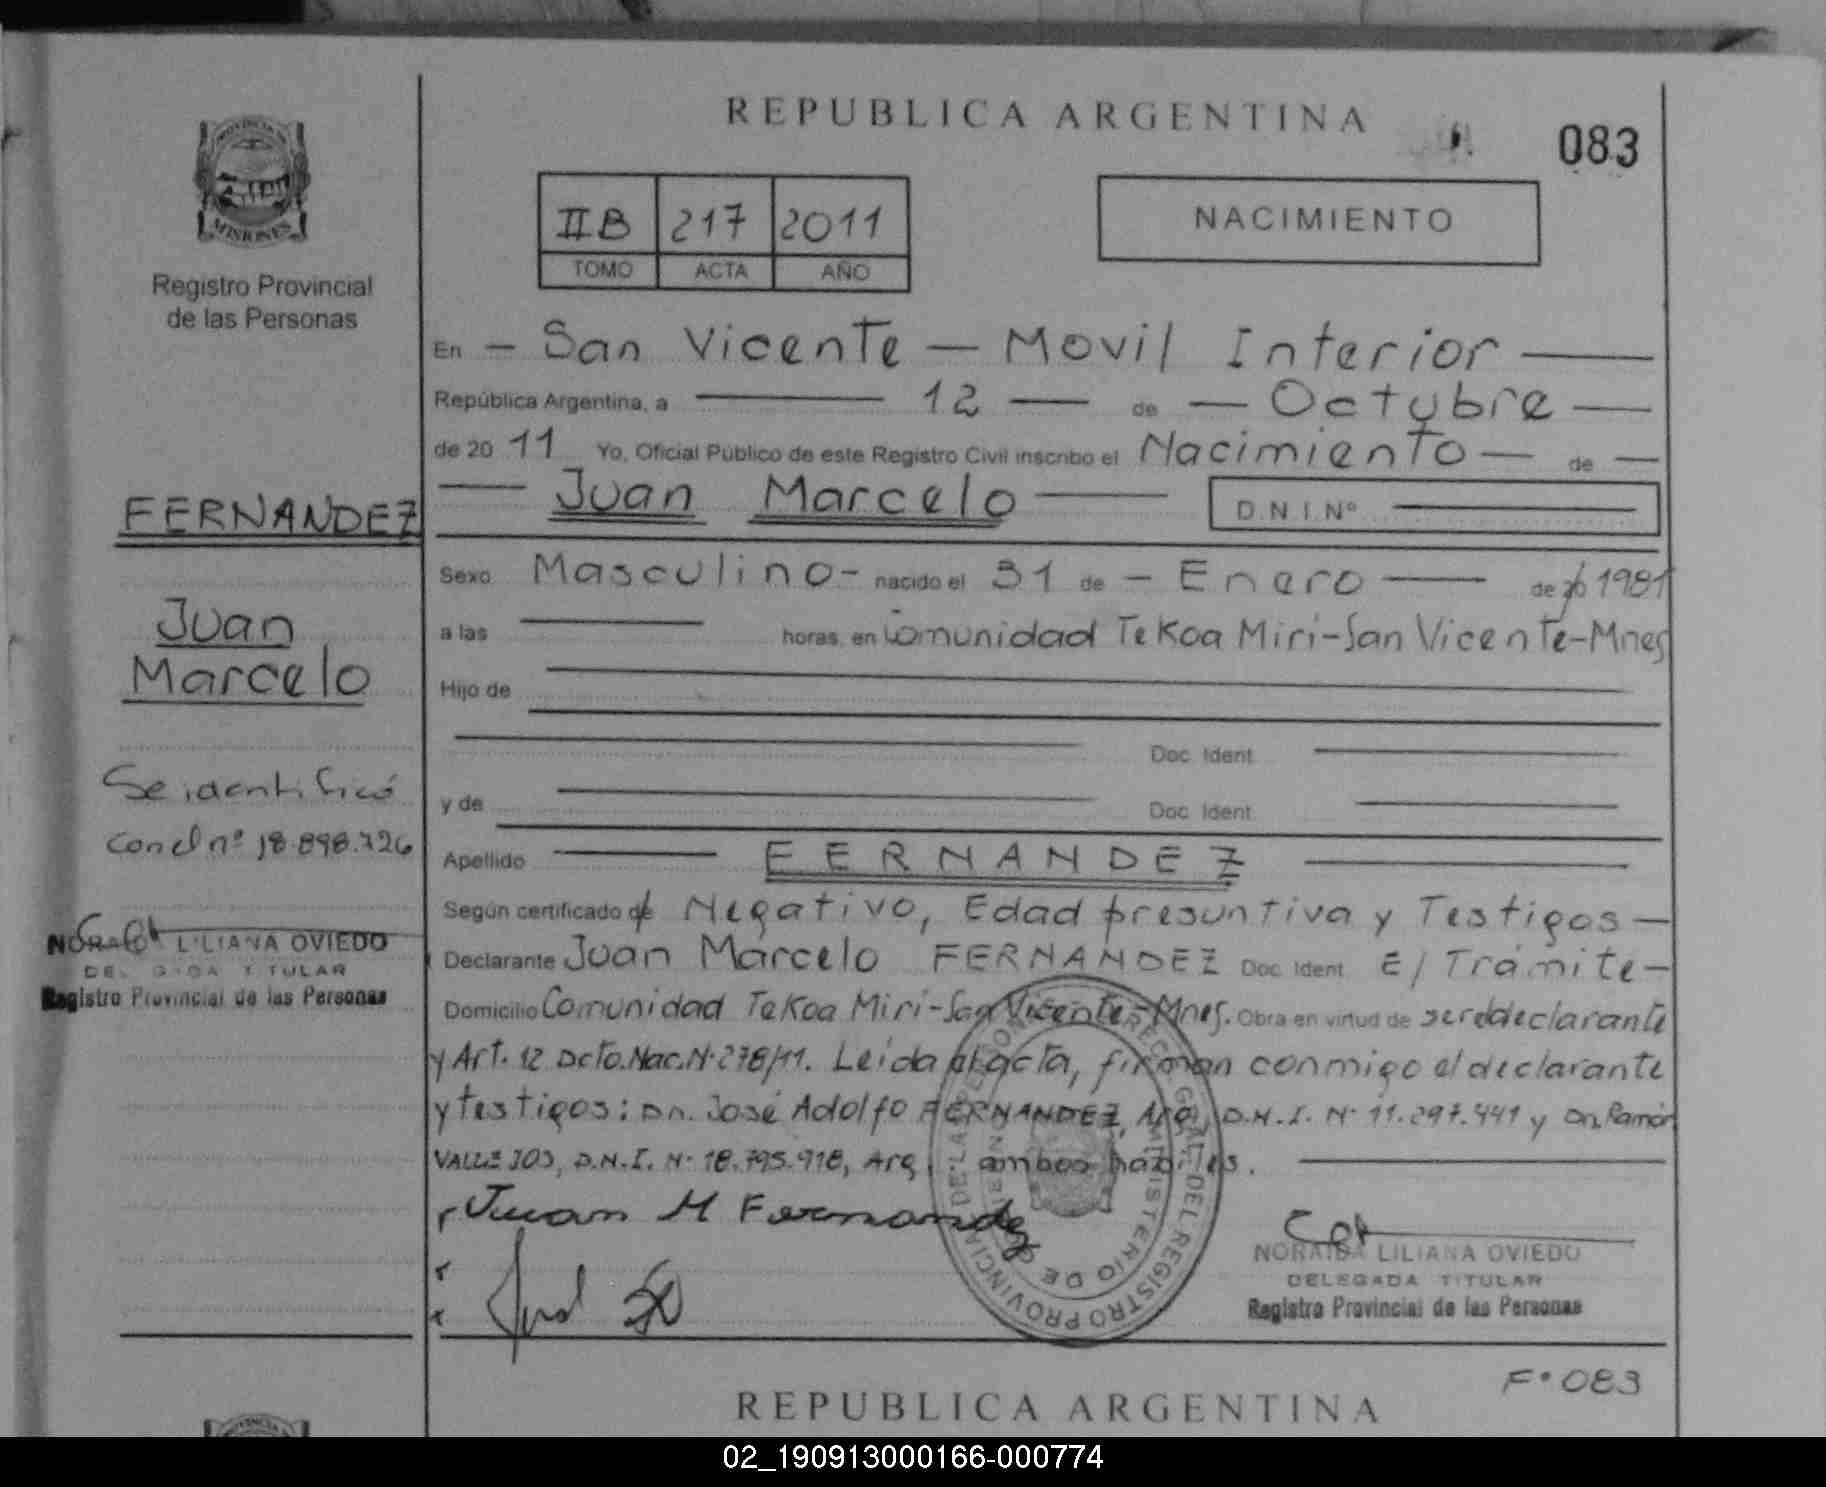 REPUBLICA ARGENTINA
083
PROVINCIA
MISIONES
Registro Provincial
de las Personas
IIB 217 2011
TOMO ACTA AÑO
NACIMIENTO
En — San Vicente — Movil Interior —
República Argentina, a — 12 — de — Octubre —
de 20 11 Yo, Oficial Público de este Registro Civil inscribo el Nacimiento — de —
— Juan Marcelo — D.N.I.Nº —
FERNANDEZ
Juan
Marcelo
Se identificó
con el nº 18.898.726
NORAIDA LILIANA OVIEDO
DELEGADA TITULAR
Registro Provincial de las Personas
Sexo Masculino- nacido el 31 de — Enero — de 20 1981
a las — horas, en Comunidad Tekoa Miri-San Vicente-Mnes
Hijo de —
— Doc. Ident. —
y de — Doc. Ident. —
Apellido — FERNANDEZ —
Según certificado de Negativo, Edad presuntiva y Testigos —
Declarante Juan Marcelo FERNANDEZ Doc. Ident. E/Trámite-
Domicilio Comunidad Tekoa Miri-San Vicente-Mnes. Obra en virtud de ser declarante
y Art. 12 Dcto.Nac.N·278/11. Leida el acta, firman conmigo el declarante
y testigos: Dn. José Adolfo FERNANDEZ, Arg., D.N.I. N· 11.297.441 y Dn. Ramón
VALLEJOS, D.N.I. N· 18.795.918, Arg.: ambos habiles. —
Juan M Fernandez
NORAIDA LILIANA OVIEDO
DELEGADA TITULAR
Registro Provincial de las Personas
F·083
REPUBLICA ARGENTINA
02_190913000166-000774